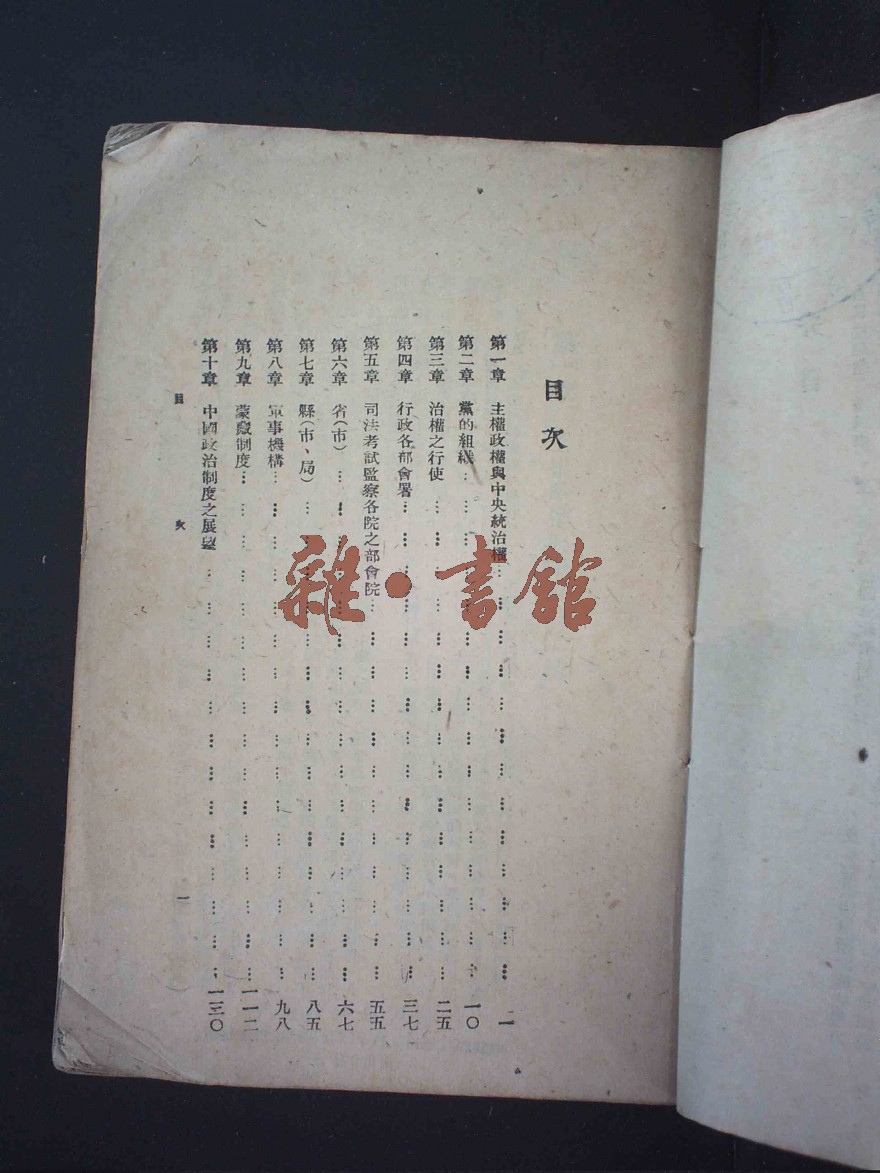 目次
第一章 主權政權與中央統治權…………一
第二章 黨的組織…………一〇
第三章 治權之行使…………二五
第四章 行政各部會署…………三七
第五章 司法考試監察各院之部會院…………五五
第六章 省(市)…………六七
第七章 縣(市、局)…………八五
第八章 軍事機構…………九八
第九章 蒙藏制度…………一一二
第十章 中國政治制度之展望…………一三〇
目次 一
雜·書館